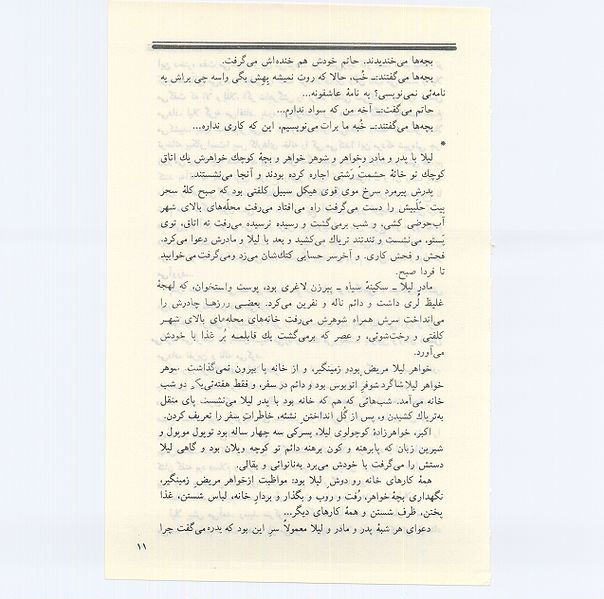 بچه‌ها می‌خندیدند. حاتم خودش هم خنده‌اش می‌گرفت.
بچه‌ها می‌گفتند:ـ خُب، حالا که روت نمیشه بِهِش بگی واسه چی براش یه
نامه‌ئی نمی‌نویسی؟ یه نامهٔ عاشقونه...
حاتم می‌گفت:ـ آخه من که سواد ندارم...
بچه‌ها می‌گفتند:ـ خُبه ما برات می‌نویسیم، این که کاری نداره...
*
لیلا با پدر و مادر وخواهر و شوهر خواهر و بچهٔ کوچك خواهرش یك اتاق
کوچك تو خانهٔ حشمتِ رَشتی اجاره کرده بودند و آنجا می‌نشستند.
پدرش پیرمرد سرخ موی قوی هیکل سبیل کلفتی بود که صبح کلهٔ سحر
پیت حَلَبیش را دست می‌گرفت راه می‌افتاد می‌رفت محله‌های بالای شهر
آب‌حوضی کشی، و شب برمی‌گشت و رسیده نرسیده می‌رفت ته اتاق، توی
پَستو، می‌نشست و تندتند تریاك می‌کشید و بعد با لیلا و مادرش دعوا می‌کرد.
فحش و فحش کاری. و آخرسر حسابی کتك‌شان می‌زد ومی‌گرفت می‌خوابید
تا فردا صبح.
مادرِ لیلا ـ سکینهٔ سیاه ـ پیرزن لاغری بود، پوست واستخوان، که لهجهٔ
غلیظ لُری داشت و دائم ناله و نفرین می‌کرد. بعضی روزها چادرش را
می‌انداخت سرش همراه شوهرش می‌رفت خانه‌های محله‌های بالای شهر
کلفتی و رخت‌شوئی، و عصر که برمی‌گشت یك قابلمه پُر غذا با خودش
می‌آورد.
خواهر لیلا مریض بودو زمینگیر، و از خانه پا بیرون نمی‌گذاشت. شوهر
خواهر لیلا شاگرد شوفر اتوبوس بود و دائم در سفر، و فقط هفته‌ئی یکی دو شب
خانه می‌آمد. شب‌هائی که هم که خانه بود با پدر لیلا می‌نشست پای منقل
به‌تریاك کشیدن و، پس از گُل انداختن نشئه، خاطراتِ سفر را تعریف کردن.
اکبر، خواهرزادهٔ کوچولوی لیلا، پسرکی سه چهار ساله بود توپول موپول و
شیرین زبان که پابرهنه و کون برهنه دائم تو کوچه ویلان بود و گاهی لیلا
دستش را می‌گرفت با خودش می‌برد به‌نانوائی و بقالی.
همهٔ کارهای خانه رو دوشِ لیلا بود: مواظبت ازخواهر مریض زمینگیر،
نگهداری بچهٔ خواهر، رُفت و روب و بگذار و بردارِ خانه، لباس شستن، غذا
پختن، ظرف شستن و همهٔ کارهای دیگر...
دعوای هر شبهٔ پدر و مادر و لیلا معمولاً سرِ این بود که پدره می‌گفت چرا
۱۱